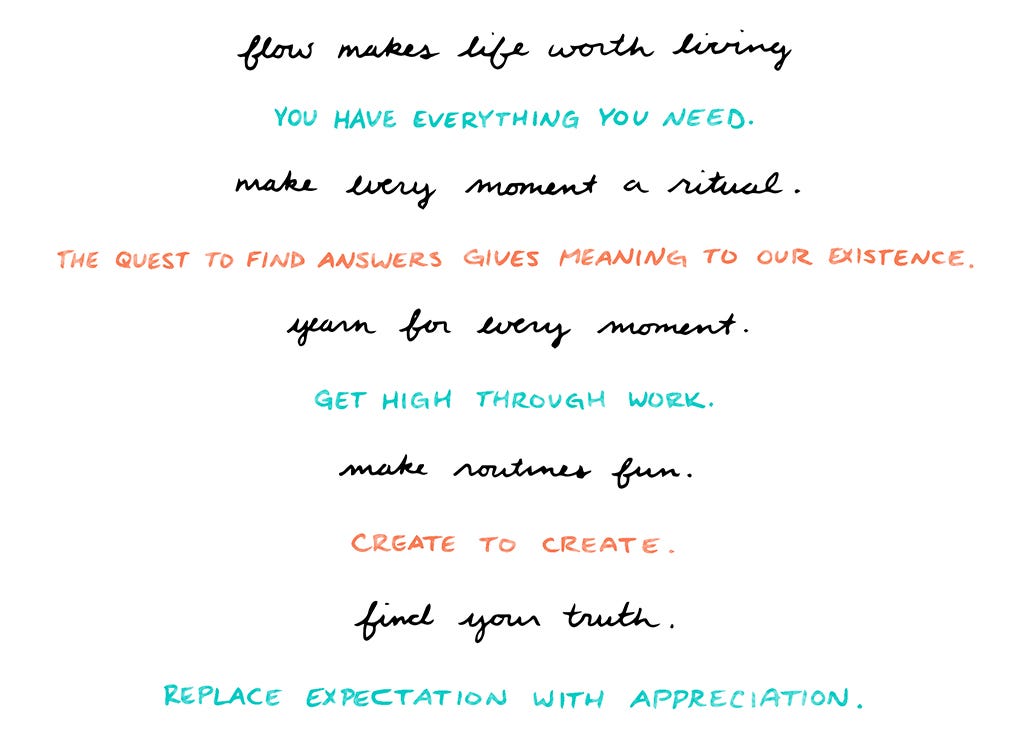 flow makes life worth living
YOU HAVE EVERYTHING YOU NEED.
make every moment a ritual.
THE QUEST TO FIND ANSWERS GIVES MEANING TO OUR EXISTENCE.
yearn for every moment.
GET HIGH THROUGH WORK.
make routines fun.
CREATE TO CREATE.
find your truth.
REPLACE EXPECTATION WITH APPRECIATION.